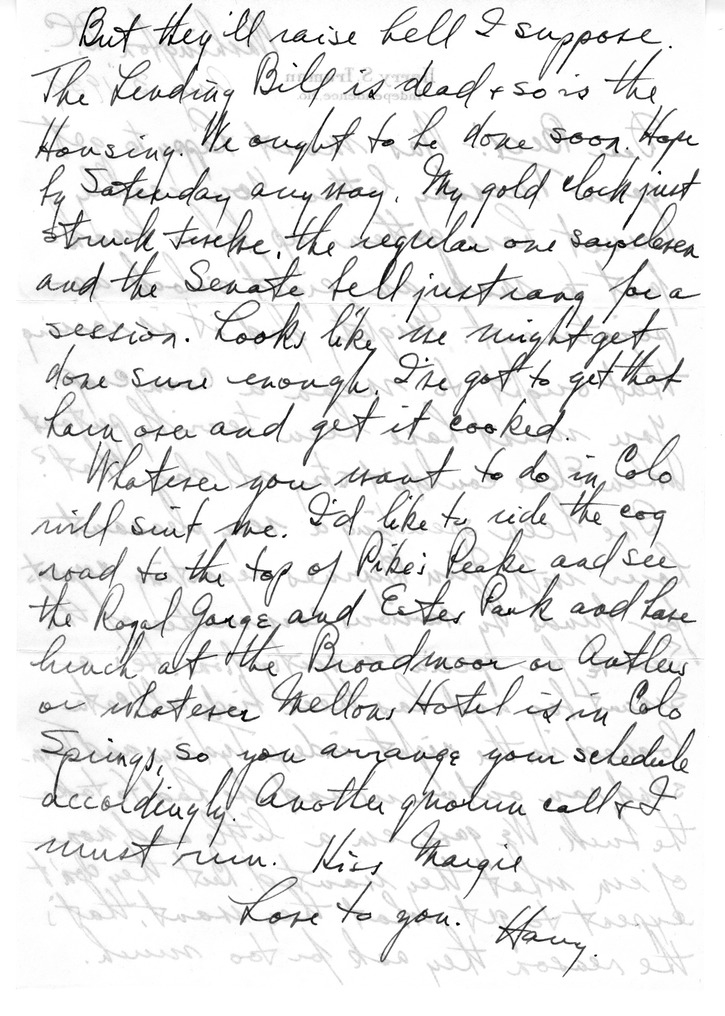 But they'll raise hell I suppose.
The Lending Bill is dead & so is the
Housing. We ought to be done soon. Hope
by Saturday anyway. My gold clock just
struck twelve, the regular one says eleven
and the Senate bell just rang for a
session. Looks like we might get
done sure enough. I've got to get that
ham over and get it cooked.
Whatever you want to do in Colo
will suit me. I'd like to ride the cog
road to the top of Pike's Peake and see
the Royal Gorge and Estes Park and have
lunch at the Broadmoor or Antlers
or whatever Mellons Hotel is in Colo
Springs, so you arrange your schedule
accordingly. Another quorum call & I
must run. Kiss Margie
Love to you. Harry.